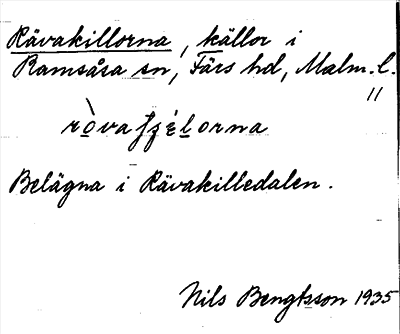 Rävakillorna, källor i
Ramsåsa sn, Färs hd, Malm. l.
"
Belägna i Rävakilledalen.
Nils Bengtsson 1935